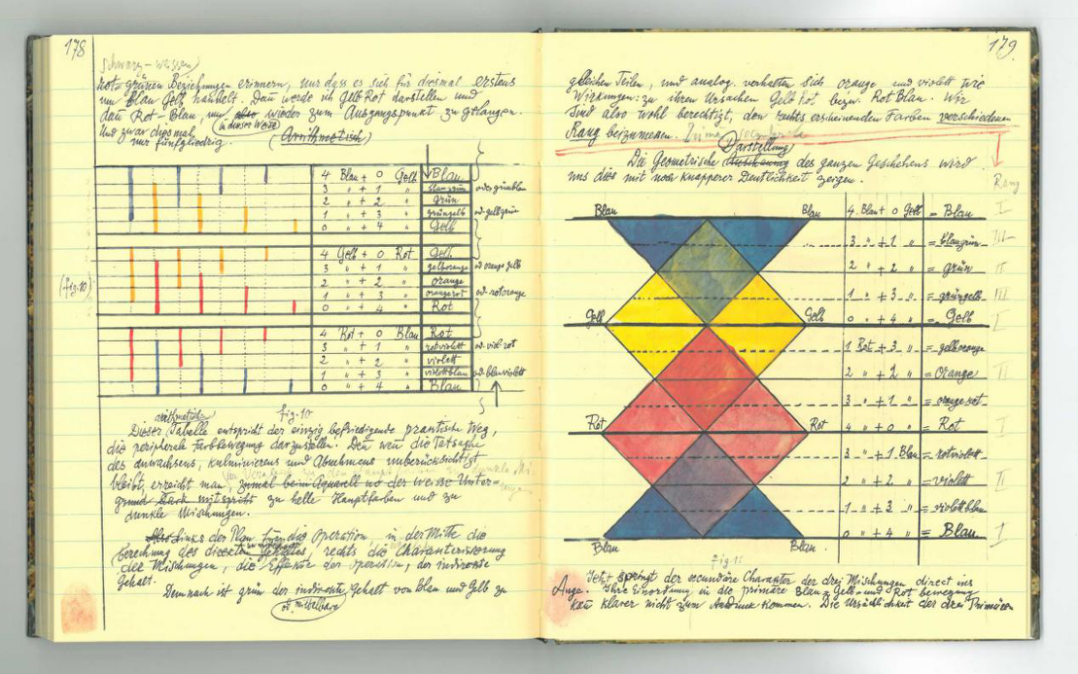 178
Schwarz-weissen
rot-grünen Beziehungen erinnern, nur dass es sich für diesmal erstens
um Blau Gelb handelt. Dann werde ich Gelb Rot darstellen und
dann Rot-Blau, um wieder zum Ausgangspunkt zu gelangen.
(in dieser Weise)
Und zwar diesmal (Arithmetisch)
nur fünfgliedrig.
4 Blau + 0 Gelb Blau
3 " + 1 " blaugrün oder grünblau
2 " + 2 " grün
1 " + 3 " grüngelb od gelbgrün
0 " + 4 " Gelb
4 Gelb + 0 Rot Gelb
3 " + 1 " gelborange od orange gelb
2 " + 2 " orange
(fig. 10)
1 " + 3 " orangerot od. rotorange
0 " + 4 " Rot
4 Rot + 0 Blau Rot
3 " + 1 " rotviolett od. viol rot
2 " + 2 " violett
1 " + 3 " violettblau od blauviolett
0 " + 4 " Blau
arithmetische fig. 10
Dieser Tabelle entspricht der einzig befriedigende praktische Weg,
die peripherale Farbbewegung darzustellen. Denn wenn die Tatsache
des Anwachsens, Kulminierens und Abnehmens unberücksichtigt
bleibt, erreicht man, zumal beim Aquarell wo der weisse Unter-
grund stark mitspricht zu helle Hauptfarben und zu
dunkle Mischungen.
links der Plan für die Operation, in der Mitte die
Berechnung des directen Gehaltes, rechts die Charakterisierung
der Mischungen, die Effecte der Operation, der indirecte
Gehalt.
Demnach ist grün der indirecte Gehalt von Blau und Gelb zu
od. mittelbare
179.
gleichen Teilen, und analog verhalten sich orange und violett wie
Wirkungen zu ihren Ursachen Gelb Rot bezw. Rot Blau. Wir
sind also wohl berechtigt, den rechts erscheinenden Farben verschiedenen
Rang beizumessen.
Darstellung
Die Geometrische des ganzen Geschehens wird
uns dies mit noch knapperer Deutlichkeit zeigen.
Rang
Blau Blau 4 Blau + 0 Gelb = Blau I
3 " + 1 " = blaugrün III
2 " + 2 " = grün II
1 " + 3 " = grüngelb III
Gelb Gelb 0 " + 4 " = Gelb I
1 Rot + 3 " = gelborange
2 " + 2 " = Orange II
3 " + 1 " = orangerot
Rot Rot 4 " + 0 " = Rot I
3 " + 1 Blau = rotviolett
2 " + 2 " = violett II
1 " + 3 " = violettblau
Blau Blau 0 " + 4 " = Blau I
fig. 11
Jetzt springt der secundäre Charakter der drei Mischungen direct ins
Auge. Ihre Einordnung in die primäre Blau-Gelb und Rot bewegung
kann klarer nicht zum Ausdruck kommen. Die Ursächlichkeit der drei Primären